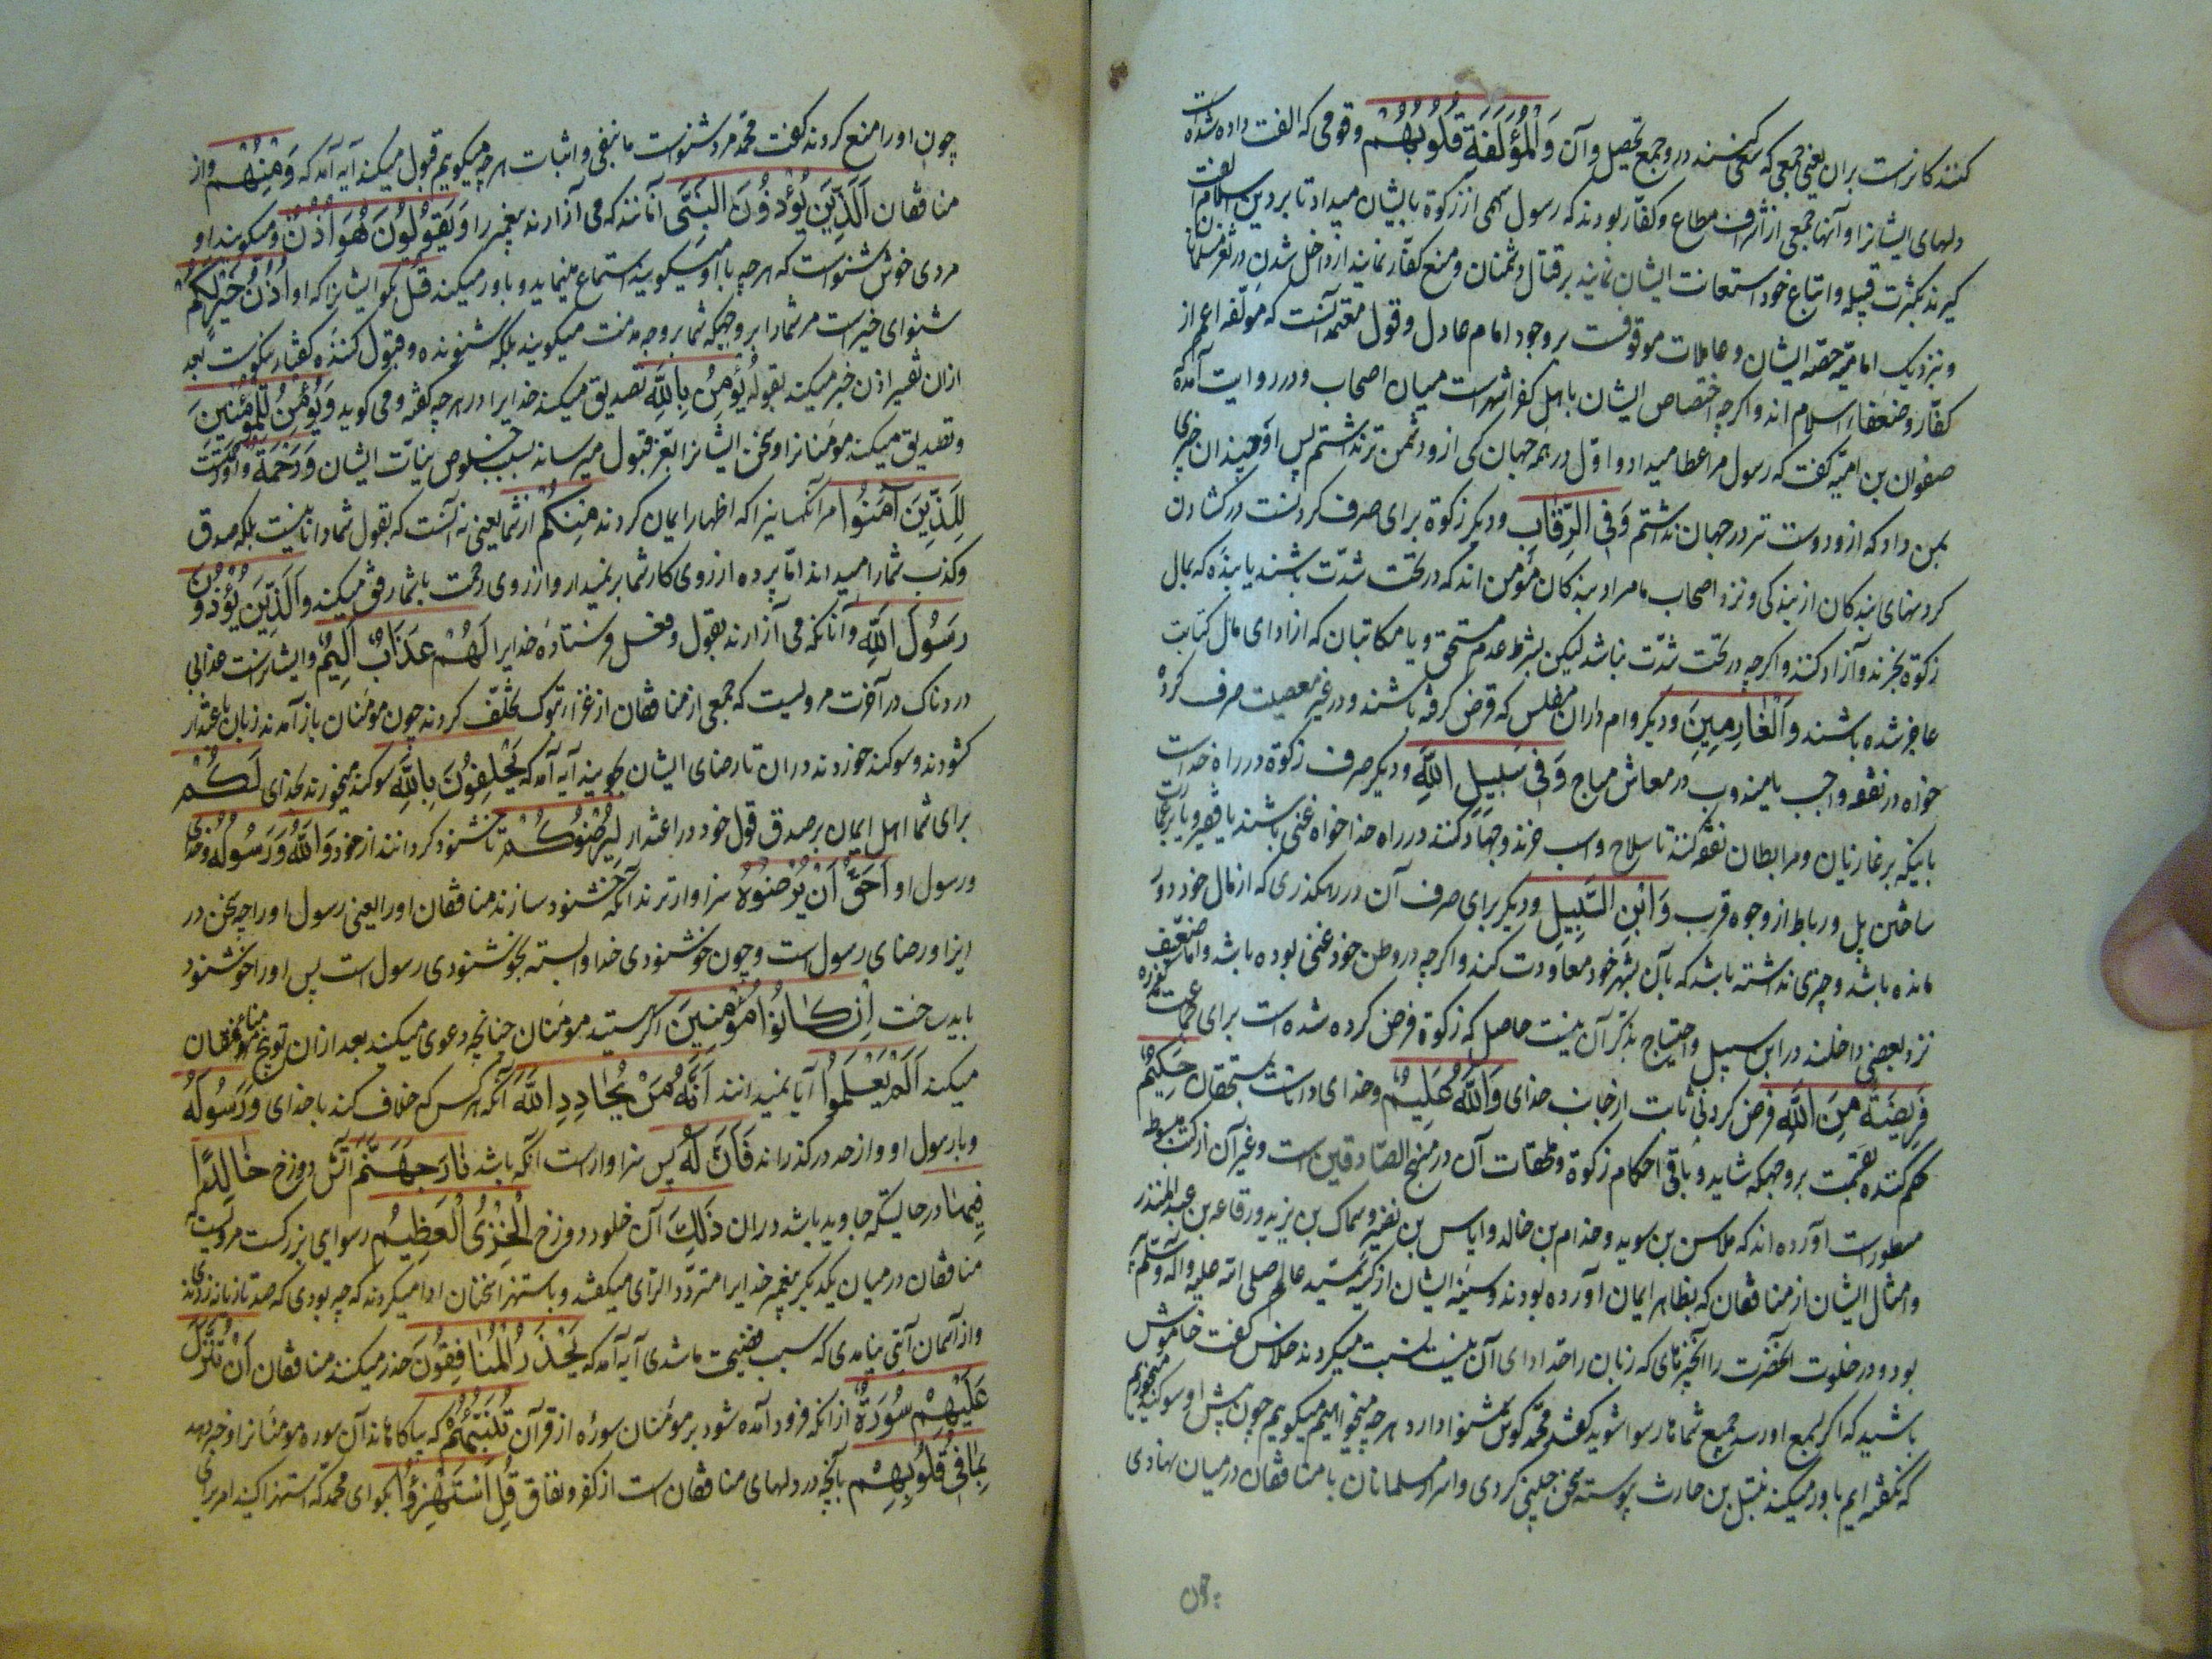 کنندکانرست بران یعنی جمعی که سعی کنند در وجمع تحصیل وآن وَالْمُؤَلَّفَةِ قُلُوبُهُمْ وقومی که الفت داده شده است
دلهای ایشانرا وآنها جمعی از اشراف مطاع وکفّار بودند که رسول سهمی از زکوة بایشان میداد تا بر دین اسلام الفت
کیرند بکثرت قبیله واتباع خود استعانت ایشان نمایند بر قتال دشمنان ومنع کفّار نمایند از داخل شدن در ثغر مسلمانان
ونزدیک امامیّه حصّه ایشان وعاملات موقوفست بر وجود امام عادل وقول معتمد آنست که مولّفه اعم از
کفّار وضعفاء اسلام اند واکرچه اختصاص ایشان باهل کفر اشهرست میان اصحاب ودر روایت آمده که
صفوان بن امیّه کفت که رسول مرا عطا میداد و اوّل در همه جهان کی از و دشمن تر نداشتم پس او چندان چیزی
بمن داد که ازو دوست تر در جهان نداشتم وَفِی الرِّقٰابِ ودیکر زکوة برای صرف کردنست در کشادن
کردنهای بندکان از بندکی ونزد اصحاب ما مراد بندکان مؤمن اند که در تحت شدّت باشند یا بنده که بمال
زکوة بخرند وآزاد کنند واکرچه در تحت شدّت نباشد لیکن بشرط عدم مستحق ویا مکاتبان که از ادای مال کتابت
عاجز شده باشند وَالْغٰارِمِینَ ودیکر وام داران مفلس که قرض کرفته باشند ودر غیر معصیت صرف کرده
خواه در نفقه واجب یا مندوب در معاش مباح وَفِی سَبِیلِ اللّٰهِ ودیکر صرف زکوة در راه خداست
باینکه بر غازیان ومرابطان نفقه کنند تا سلاح واسب خرند وجهاد کنند در راه خدا خواه غنی باشند یا فقیر ویا بر عمارت
ساختن پل ورباط از وجوه قرب وَابْنِ السَّبِیلِ ودیکر برای صرف آن در رهکذری که از مال خود دور
مانده باشد وچیزی نداشته باشد که بآن بشهر خود معاودت کند واکرچه در وطن خود غنی بوده باشد واما ضعیف
نزد بعضی داخلند در ابن سبیل واحتیاج بذکر آن نیست حاصل که زکوة فرض کرده شده است برای جماعت مذکوره
فَرِیضَةً مِنَ اللّٰهِ فرض کردنی ثابت از جانب خدای وَاللّٰهُ عَلِیمٌ وخدای داناست بمستحقان حَکِیمٌ
حکم کننده بقسمت بر وجهیکه شاید وباقی احکام زکوة وملحقات آن در منهج الصّادقین است وغیر آن از کتب مبسوطه
مسطورست آورده اند که جلاس بن سوید وخذام بن خالد وایاس بن وسماک بن یزید ورفاعه بن عبد المنذر
وامثال ایشان از منافقان که بظاهر ایمان آورده بودند وسینه ایشان از کینه سیّد عالم صلی الله علیه واله وسلّم پر
بود ودر خلوت آنحضرت را آنچیزهای که زبان را حد ادای آن نیست نسبت میکردند جلاس کفت خاموش
باشید که اکر بسمع او رسد جمیع شما را رسوا شوید کفتند محمّد کوش شنوا دارد هر چه میخواهیم میکویم چون پیش او سوکند میخوریم
که نکفته ایم باور میکند نبتل بن حارث پیوسته سخن چینی کردی واسرار مسلمانان با منافقان در میان نهادی
چون
چون اورا منع کردند کفت محمّد مرد شنوانست ما بنفی واثبات هر چه میکویم قبول میکند آیه آمد که وَمِنْهُمْ واز
منافقان اَلَّذِینَ یُؤْذُونَ النَّبِیَّ آنانند که می آزارند پیغمبر را وَیَقُولُونَ هُوَ اُذُنٌ ومیکویند او
مردی خوش شنوانست که هر چه با او میکویند استماع مینماید وباور میکند قُلْ بکو ایشانرا که او اُذُنُ خَیْرٍ لَکُمْ
شنوای خیرست مر شما را بر وجهیکه شما بر وجه مذمت میکویند بلکه شنونده وقبول کننده کفتار نیکوست بعد
ازان تفسیر اذن خیر میکند بقوله یُؤْمِنُ بِاللّٰهِ تصدیق میکند خدایرا در هر چه کفته ومی کوید وَیُؤْمِنُ لِلْمُؤْمِنِینَ
وتصدیق میکند مؤمنانرا وسخن ایشانرا بعز قبول میرساند بسبب خلوص نیّات ایشان وَرَحْمَةٌ واو رحمتست
لِلَّذِینَ آمَنُوا مر آنکسانیرا که اظهار ایمان کردند مِنْکُمْ از شما یعنی نه آنست که بقول شما دانا نیست بلکه صدق
وکذب شما را میداند امّا پرده از روی کار شما بر نمیدارد واز روی رحمت با شما رفق میکند وَالَّذِینَ یُؤْذُونَ
رَسُولَ اللّٰهِ وآنانکه می آزارند بقول وفعل فرستاده خدایرا لَهُمْ عَذَابٌ اَلِیمٌ مر ایشانراست عذابی
دردناک در آخرت مرویست که جمعی از منافقان از غزاء تبوک تخلّف کردند چون مؤمنان باز آمدند زبان باعتذار
کشودند وسوکند خوردند دران تا رضای ایشان بجویند آیه آمد که یَحْلِفُونَ بِاللّٰهِ سوکند میخورند بخدای لَکُمْ
برای شما اهل ایمان بر صدق قول خود در اعتذار لِیُرْضُوکُمْ تا خشنود کردانند از خود وَاللّٰهُ وَرَسُولُهُ وخدای
ورسول او اَحَقُّ اَنْ یُرْضُوهُ سزاوارترند آنکه خشنود سازند منافقان اورا یعنی رسول اورا چه سخن در
ایزا ورضای رسول است وچون خوشنودی خدا وابسته بخوشنودی رسول است پس اورا خوشنود
باید ساخت اِنْ کٰانُوا مُؤْمِنِینَ اکر هستند مؤمنان چنانچه دعوی میکنند بعد ازان توبیخ منافقان
میکند اَلَمْ یَعْلَمُوا آیا نمیدانند اَنَّهُ مَنْ یُحٰادِدِ اللّٰهَ آنکه هر کس که خلاف کند با خدای وَرَسُولَهُ
وبا رسول او واز حد درکذراند فَاَنَّ لَهُ پس سزاوار است آنکه باشد نٰارَ جَهَنَّمَ آتش دوزخ خٰالِدًا
فِیهٰا در حالیتیکه جاوید باشد دران ذٰلِکَ آن خلود دوزخ الْخِزْیُ الْعَظِیمُ رسوایی بزرکست مرویست که
منافقان در میان یکدیکر پیغمبر خدایرا متردّد الرّای میکفتند وباستهزا سخنان ادا میکردند که چه بودی که صد تازیانه زدندی
واز آسمان آیتی نیامدی که سبب فضیحت ما شدی آیه آمد که یَحْذَرُ الْمُنٰافِقُونَ حذر میکنند منافقان اَنْ تُنَزَّلَ
عَلَیْهِمْ سُورَةٌ ازانکه فرود آمده شود بر مؤمنان سوره از قرآن تُنَبِّئُهُمْ که بیاکاهاند آن سوره مؤمنانرا وخبر دهد
بِمٰا فِی قُلُوبِهِمْ بآنچه در دلهای منافقان است از کفر ونفاق قُلِ اسْتَهْزِؤُا بکو ای محمّد که استهزا کنید امر برای